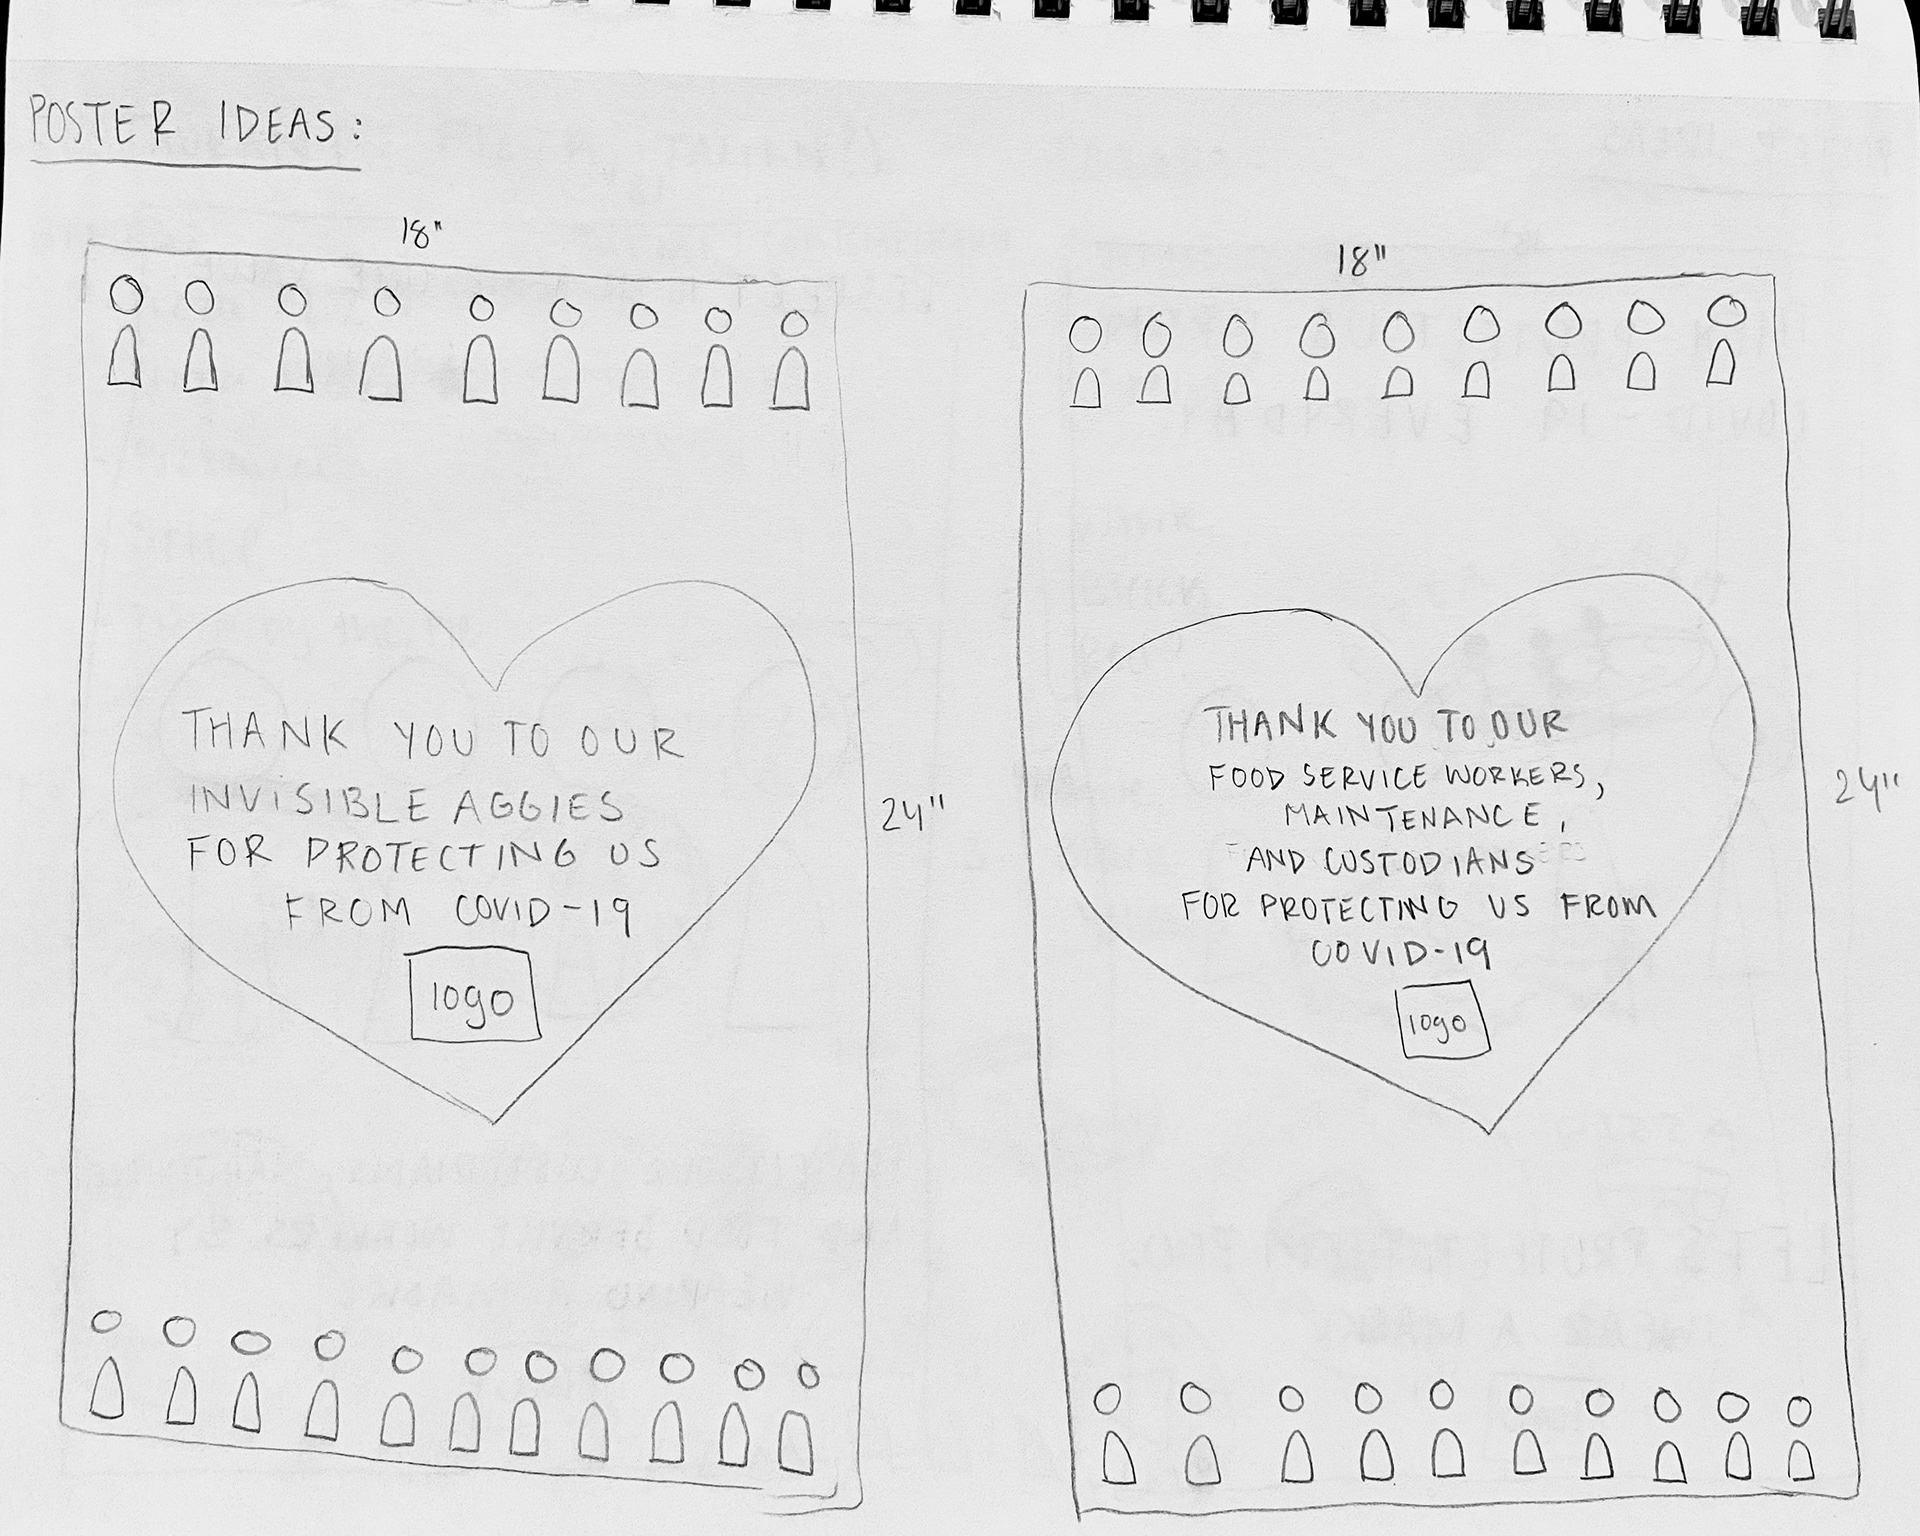 POSTER IDEAS:
18"
THANK YOU TO OUR
INVISIBLE AGGIES
FOR PROTECTING US
FROM COVID-19
logo
24"
18"
THANK YOU TO OUR
FOOD SERVICE WORKERS,
MAINTENANCE,
AND CUSTODIANS
FOR PROTECTING US FROM
COVID-19
logo
24"